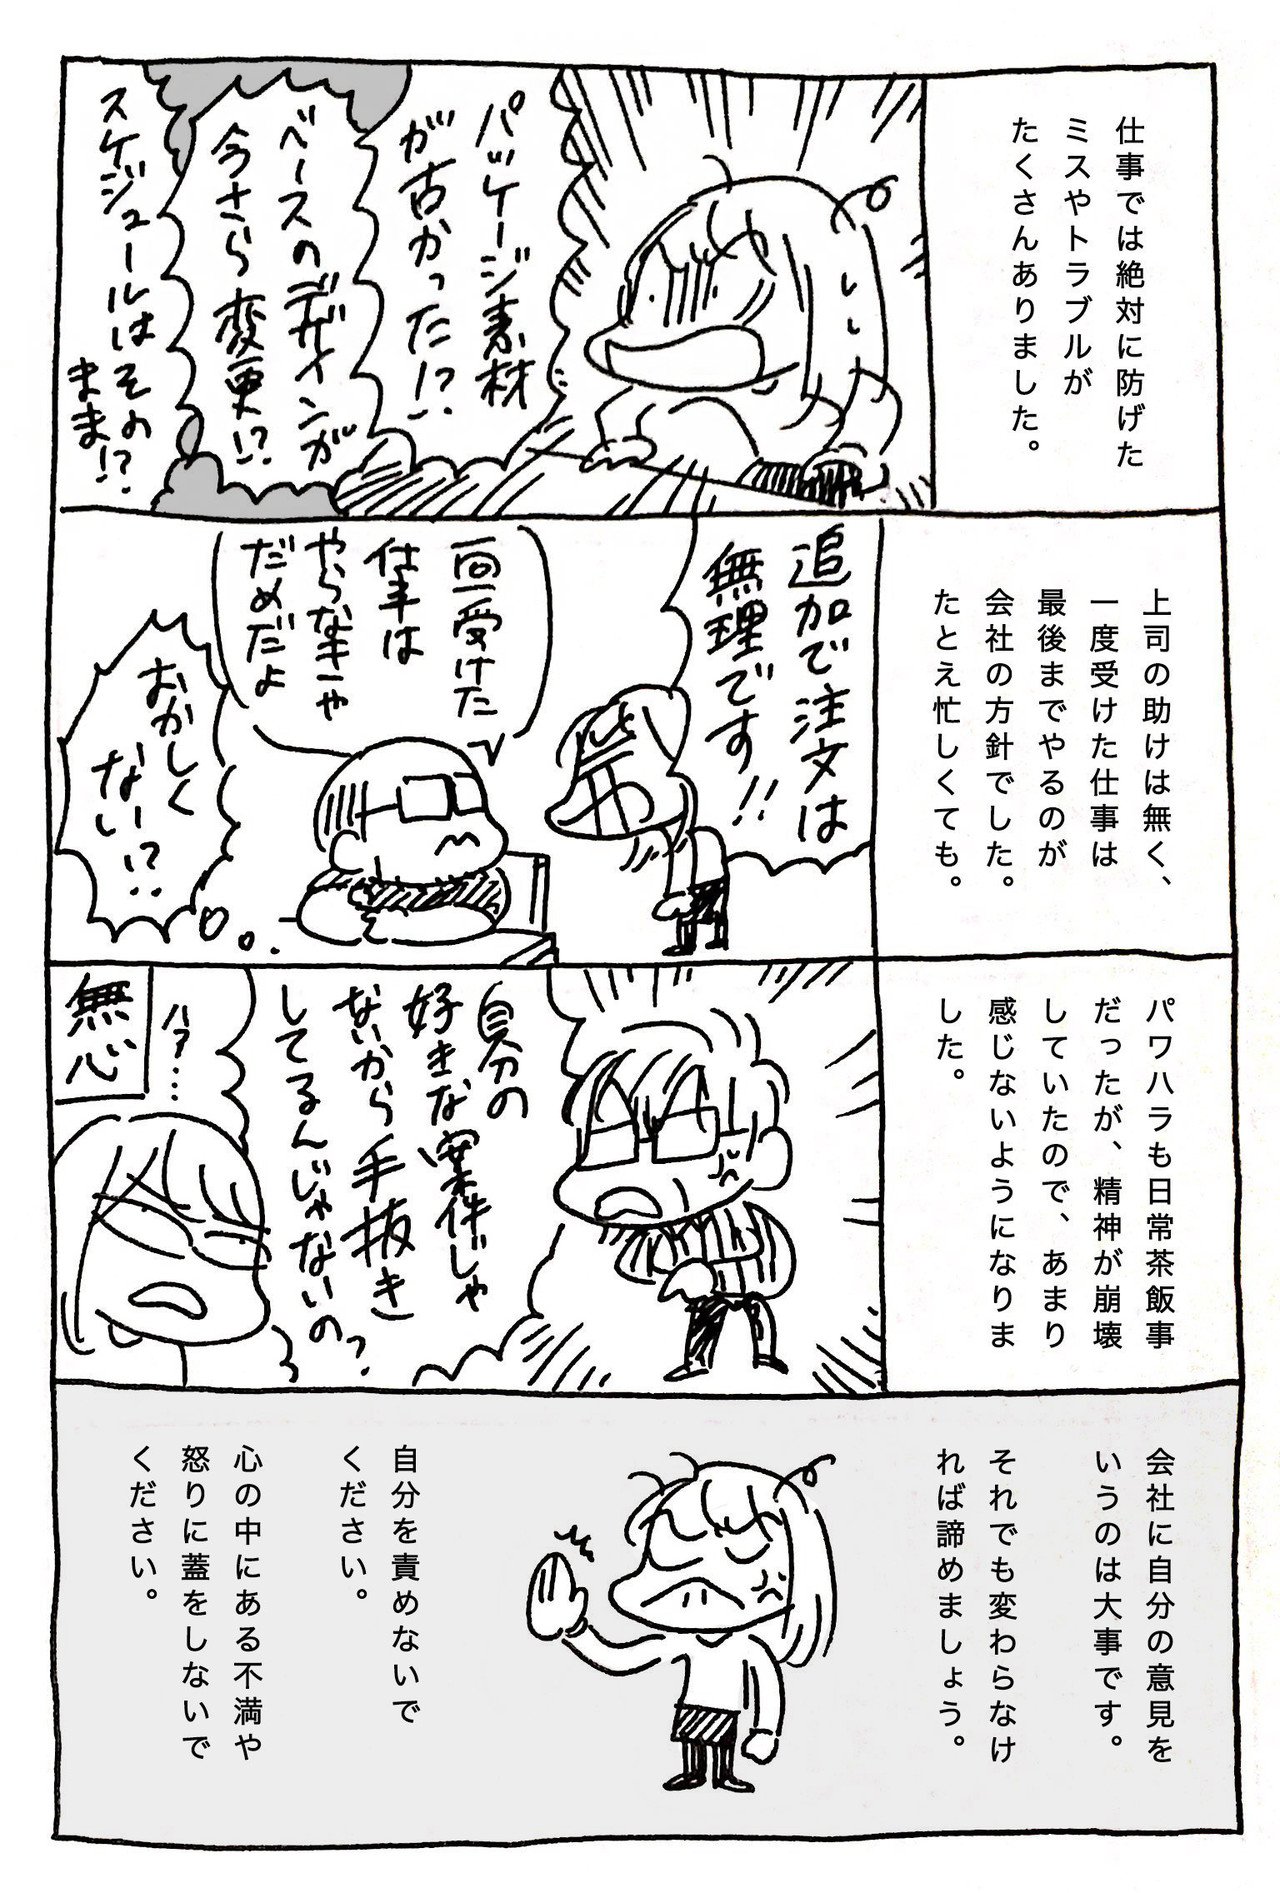 仕事では絶対に防げた
ミスやトラブルが
たくさんありました。
パッケージ素材
が古かった!?
ベースのデザインが
今さら変更!?
スケジュールはその
まま!?
上司の助けは無く、
一度受けた仕事は
最後までやるのが
会社の方針でした。
たとえ忙しくても。
追加で注文は
無理です!!
一回受けた
仕事は
やらなきゃ
だめだよ
おかしく
ない!?
パワハラも日常茶飯事
だったが、精神が崩壊
していたので、あまり
感じないようになりま
した。
自分の
好きな案件じゃ
ないから手抜き
してるんじゃないの?
ハア……
無心
会社に自分の意見を
いうのは大事です。
それでも変わらなけ
れば諦めましょう。
自分を責めないで
ください。
心の中にある不満や
怒りに蓋をしないで
ください。